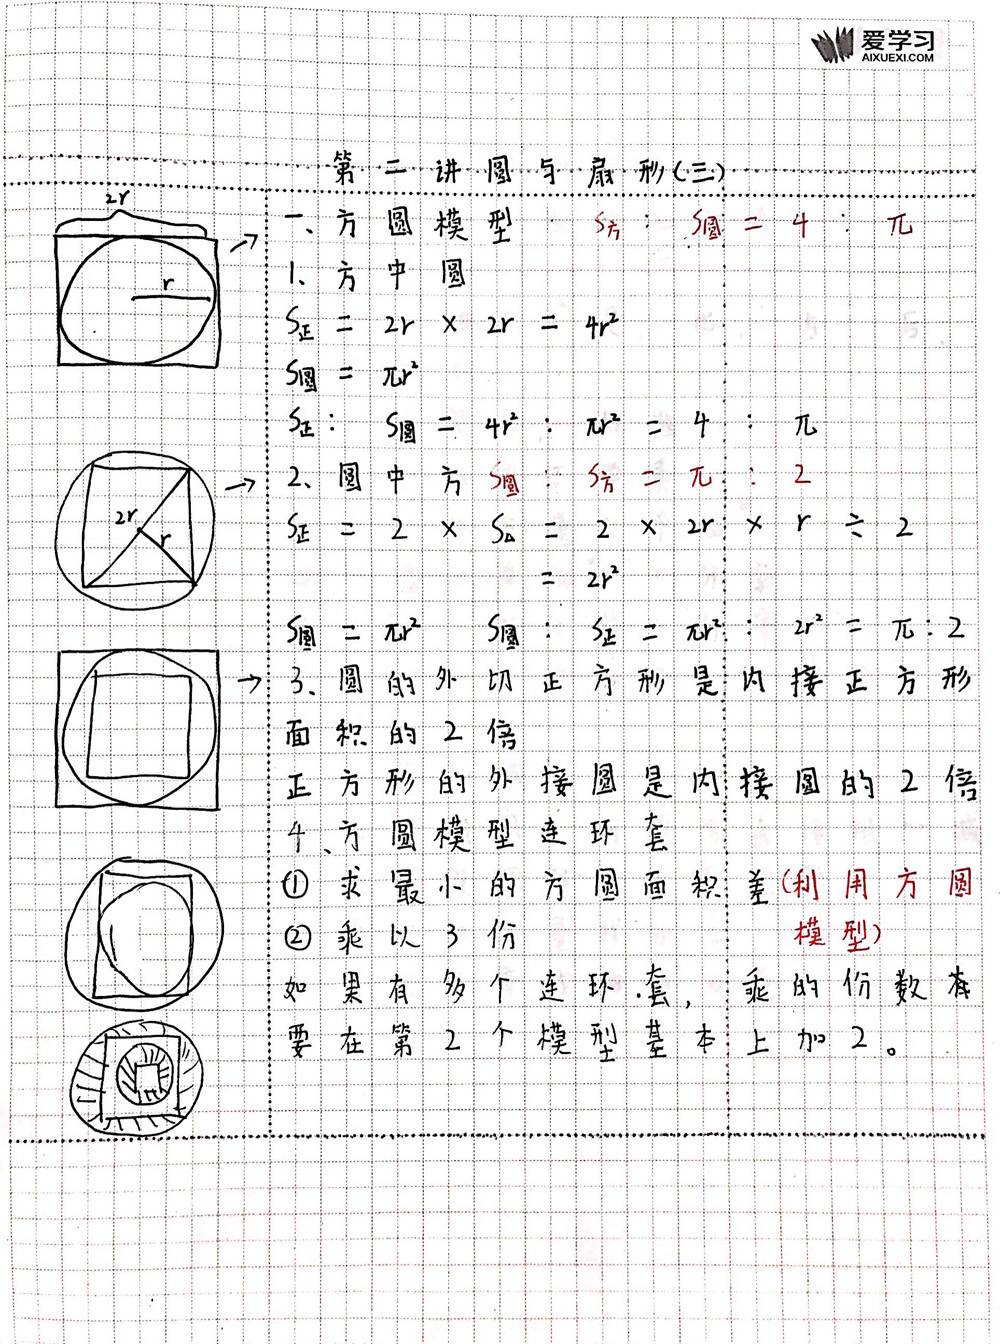 爱学习
AIXUEXI.COM
第二讲圆与扇形(三)
2r
一、方圆模型 S方:S圆=4:π
r
1、方中圆
S正=2r×2r=4r²
S圆=πr²
S正:S圆=4r²:πr²=4:π
2、圆中方 S圆:S方=π:2
2r
r
S正=2×S△=2×2r×r÷2
=2r²
S圆=πr² S圆:S正=πr²:2r²=π:2
3、圆的外切正方形是内接正方形
面积的2倍
正方形的外接圆是内接圆的2倍
4、方圆模型连环套
①求最小的方圆面积差(利用方圆
模型)
②乘以3份
如果有多个连环套,乘的份数
要在第2个模型基本上加2。